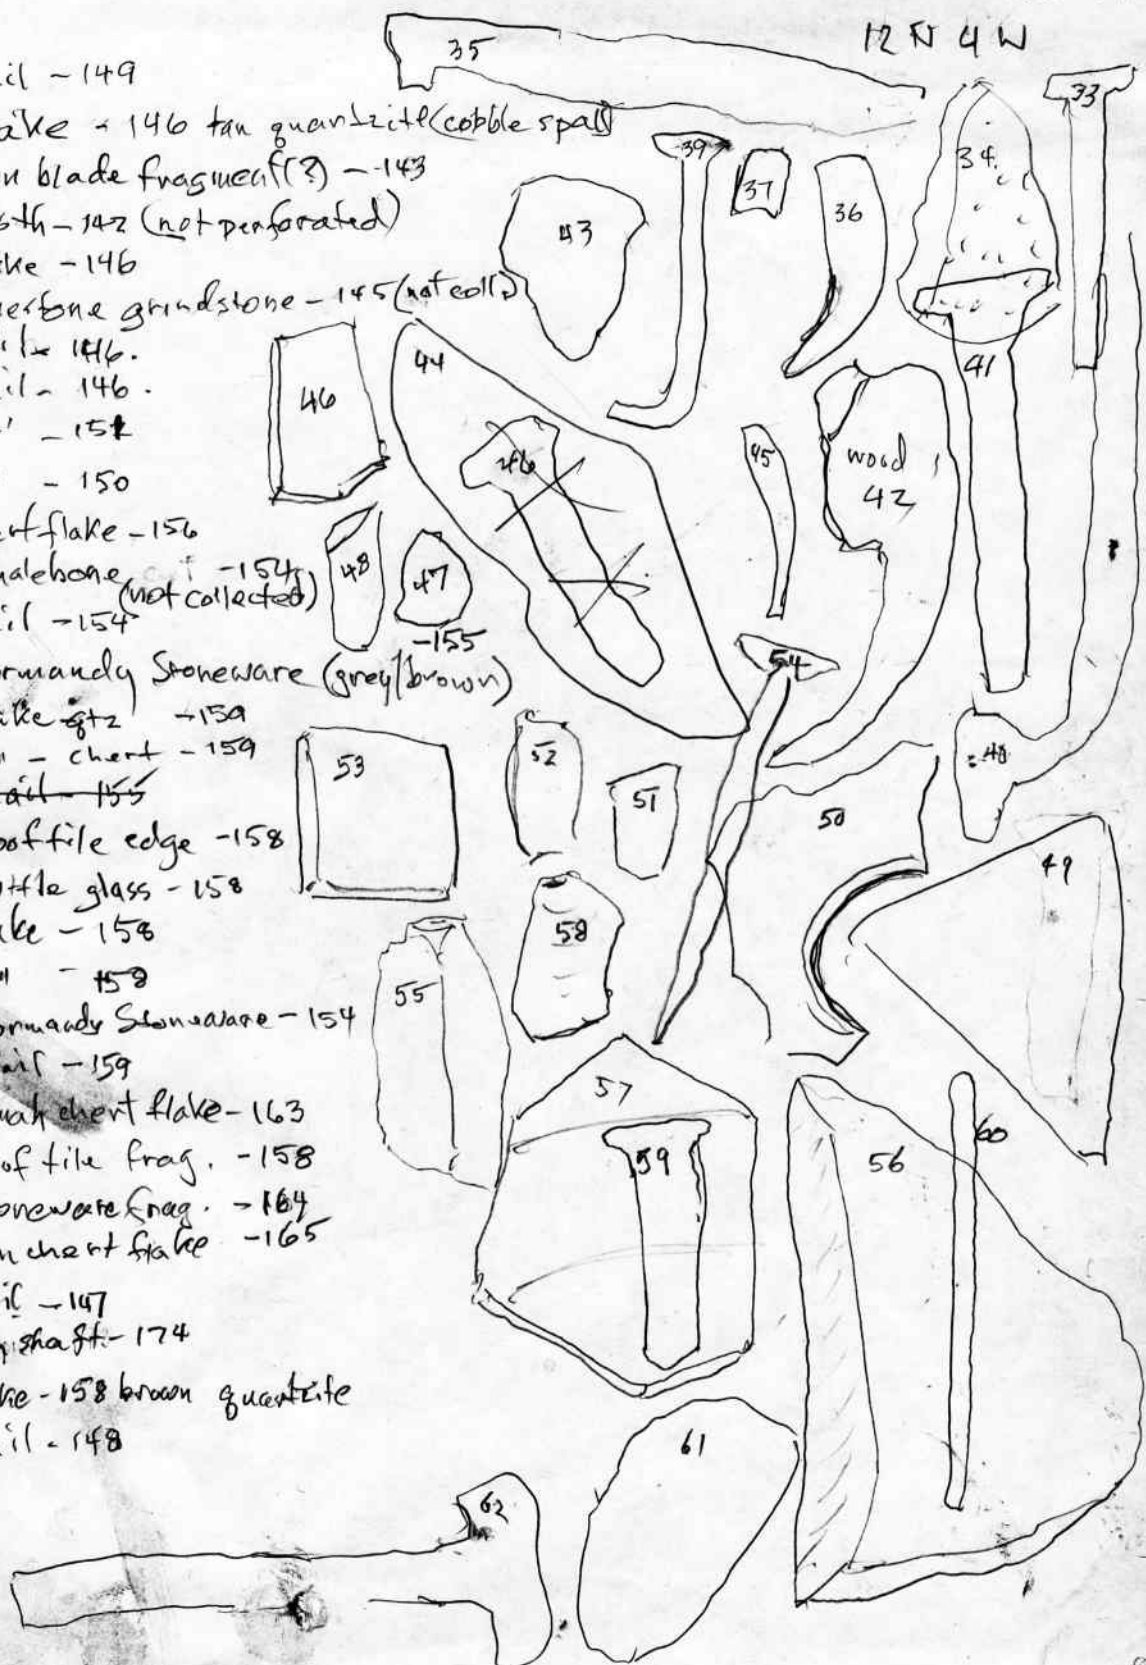 12 N 4 W
il - 149
ake - 146 tan quartzite (cobble spall)
n blade fragment(?) - 143
oth - 142 (not perforated)
ke - 146
estone grindstone - 145 (not coll.)
il - 146.
il - 146.
" - 151
- 150
ert flake - 156
halebone - 154
(not collected)
il - 154
-155
ormandy Stoneware (grey/brown)
ake qtz - 159
" - chert - 159
ail - 155
oof tile edge - 158
ottle glass - 158
ake - 158
" - 158
ormandy Stoneware - 154
ail - 159
chert flake - 163
of tile frag. - 158
oneware frag. - 164
n chert flake - 165
il - 147
shaft - 174
ke - 158 brown quartzite
il - 148
35
33
39
37
36
34
43
44
46
41
46
45
wood
42
48
47
54
40
53
52
51
50
49
58
55
57
59
56
60
61
62